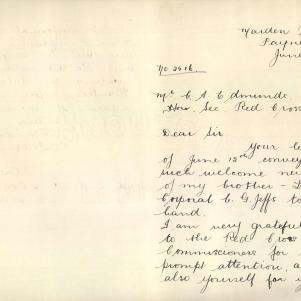 Maiden
Payne
June
No 2516.
Mr C A Edmunds
Hon. Sec Red Cross
Dear Sir
Your le
of June 12th convey
such welcome ne
of my brother - L
Corporal C. G. Jeffs to
hand.
I am very grateful
to the Red Cross
Commissioners for
prompt attention, a
also yourself for y